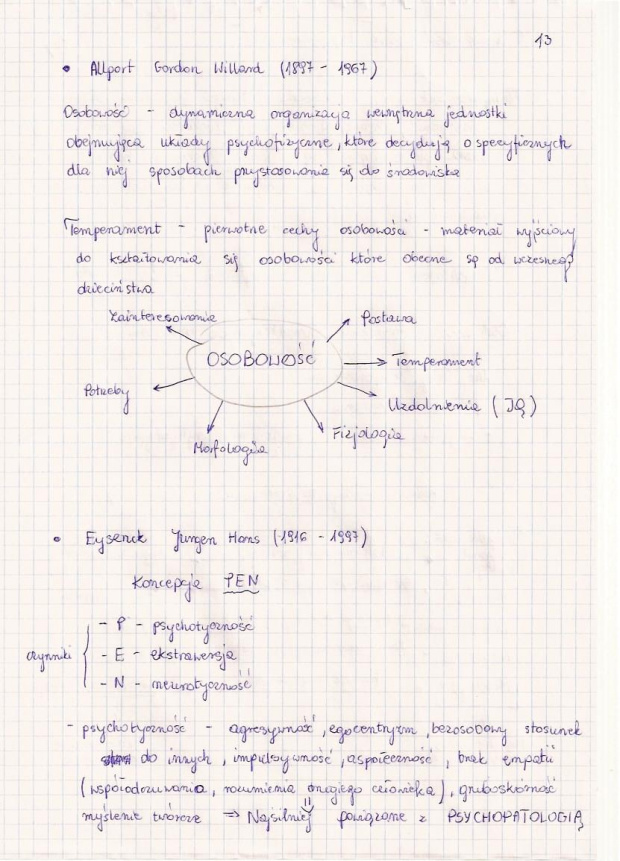 13
• Allport Gordon Willard (1897 - 1967)
Osobowość - dynamiczna organizacja wewnętrzna jednostki
obejmująca układy psychofizyczne, które decydują o specyficznych
dla niej sposobach przystosowania się do środowiska
Temperament - pierwotne cechy osobowości - materiał wyjściowy
do kształtowania się osobowości które obecne są od wczesnego
dzieciństwa
Zainteresowania
Postawa
OSOBOWOŚĆ
Temperament
Potrzeby
Uzdolnienia (IQ)
Fizjologia
Morfologia
• Eysenck Jurgen Hans (1916 - 1997)
Koncepcja PEN
czynniki
- P - psychotyczność
- E - ekstrawersja
- N - neurotyczność
- psychotyczność - agresywność, egocentryzm, bezosobowy stosunek
do innych, impulsywność, aspołeczność, brak empatii
(współodczuwania, rozumienia drugiego człowieka), gruboskórność
myślenie twórcze => Najsilniej powiązane z PSYCHOPATOLOGIĄ